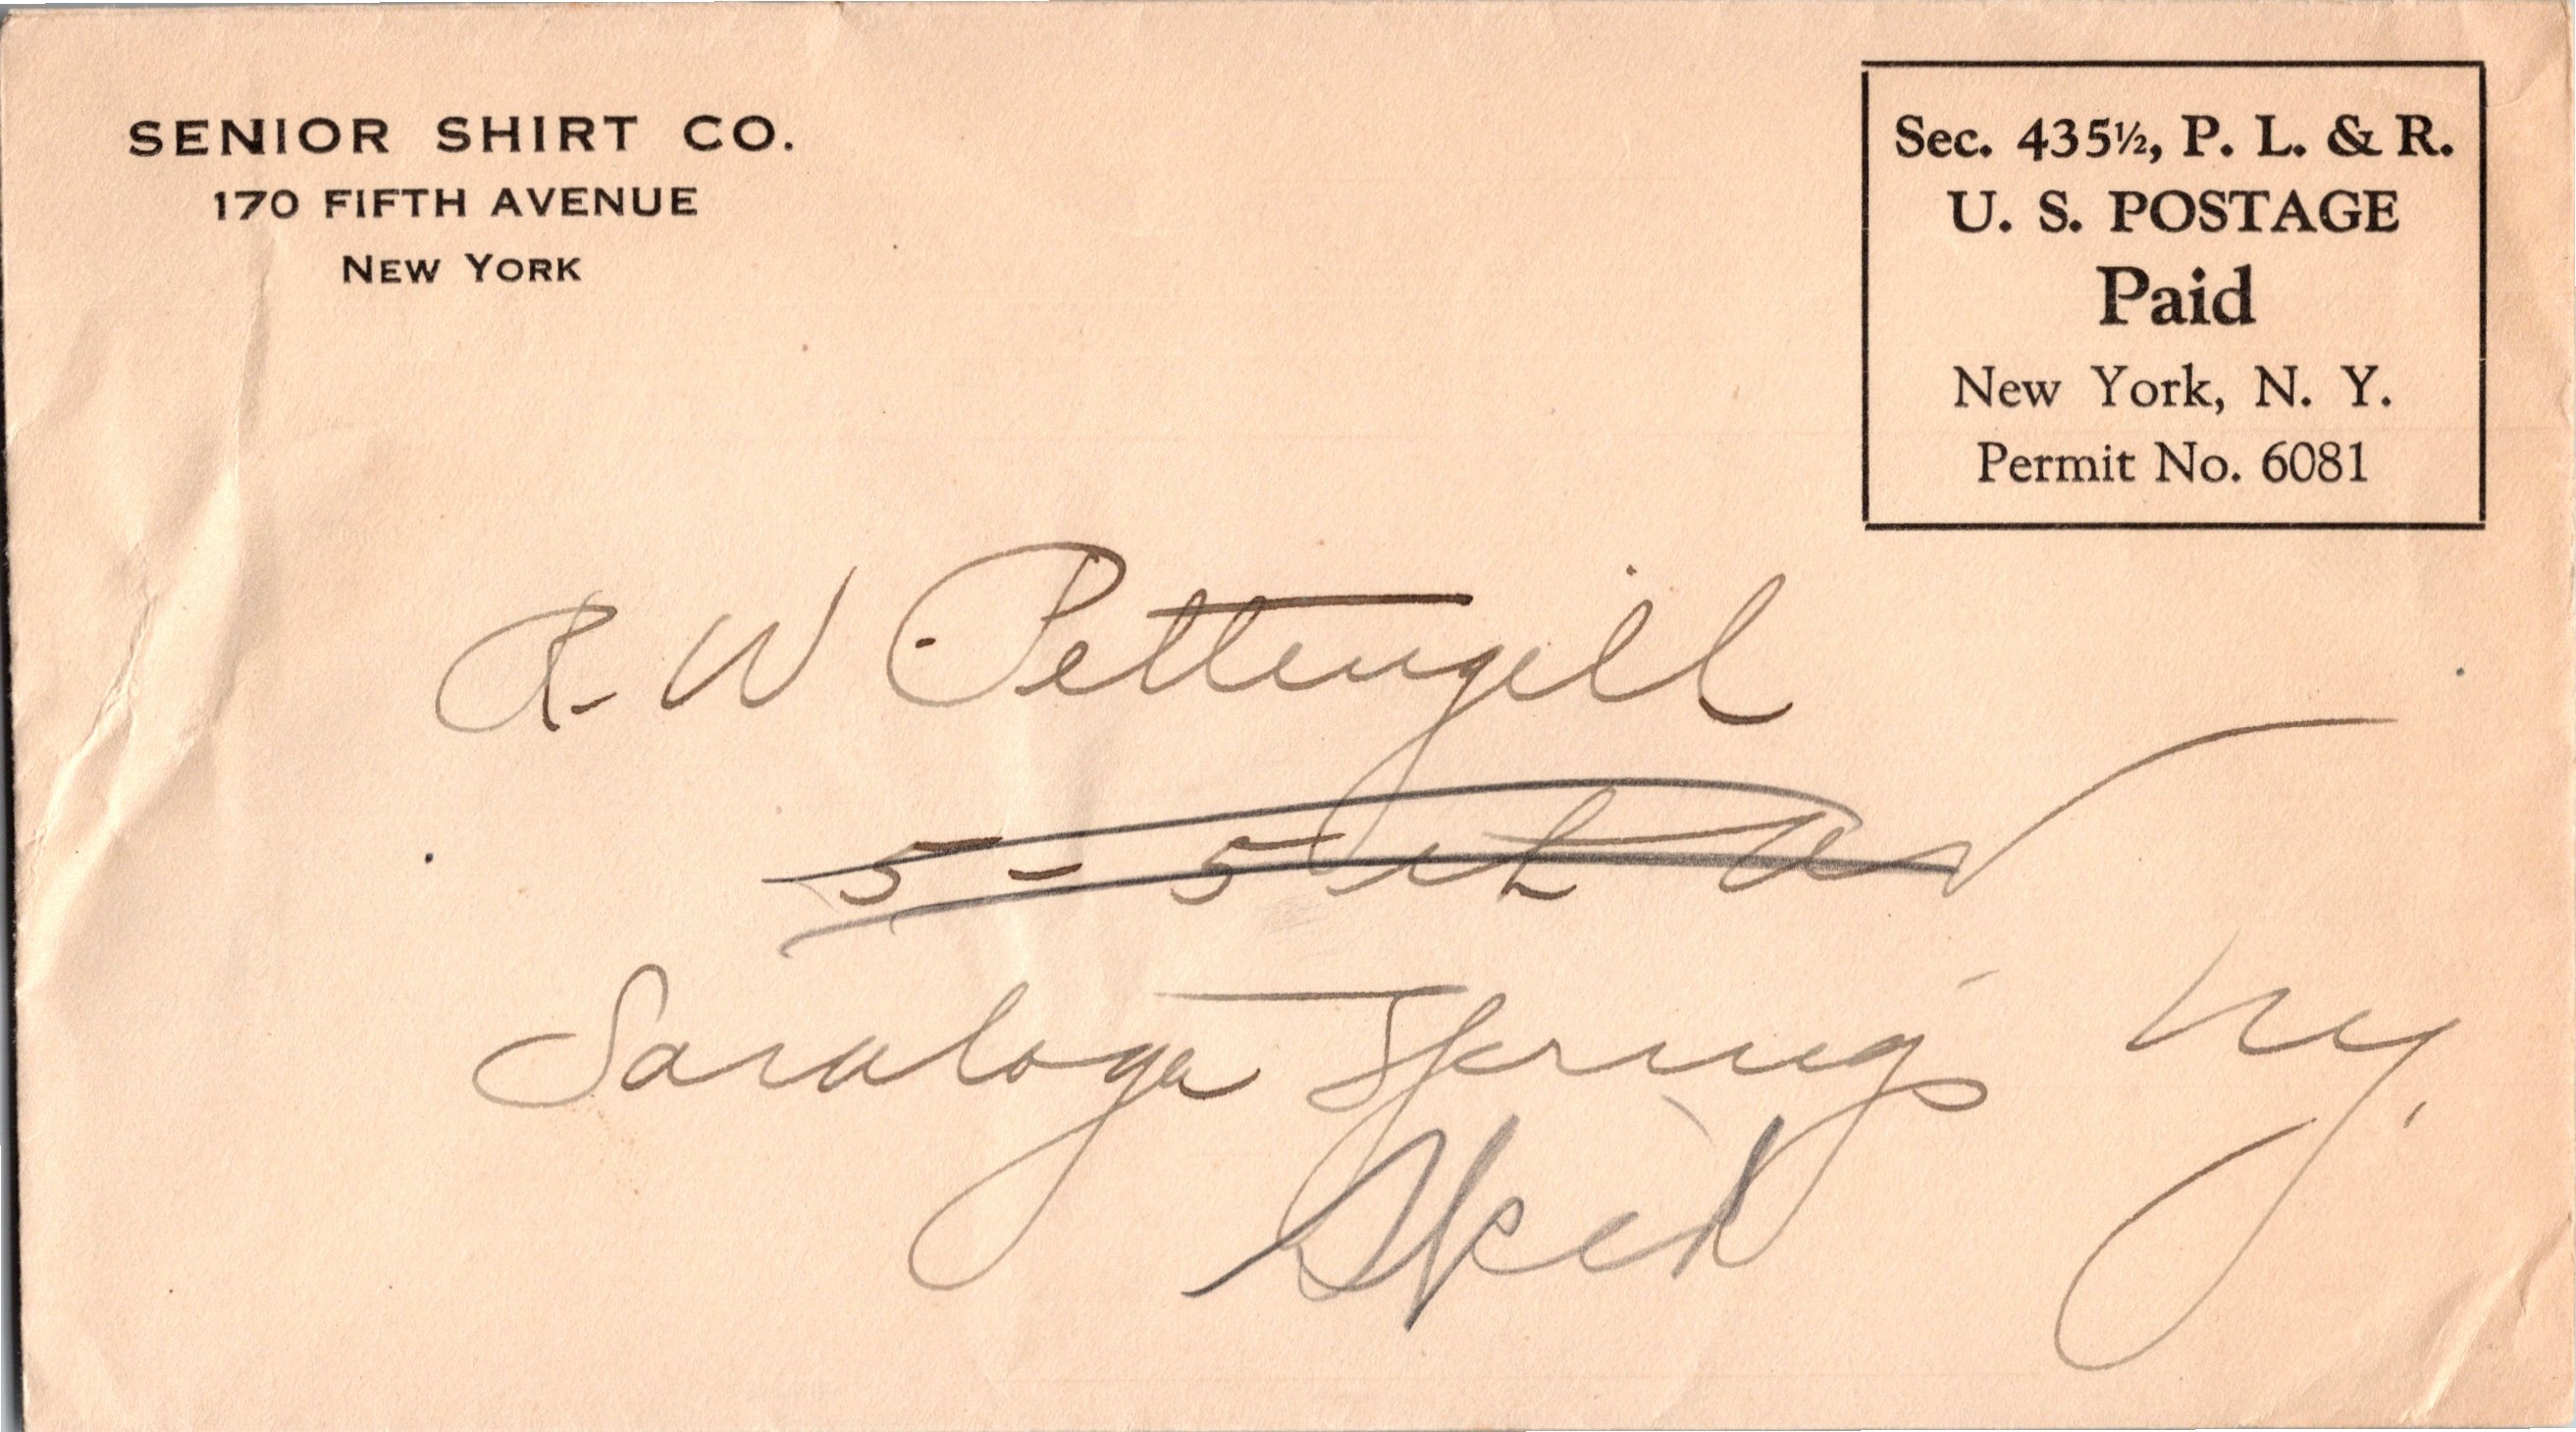 SENIOR SHIRT CO.
170 FIFTH AVENUE
NEW YORK
Sec. 435½, P. L. & R.
U. S. POSTAGE
Paid
New York, N. Y.
Permit No. 6081
R. W Pettengill
5 - 5
Saratoga Springs Ny.